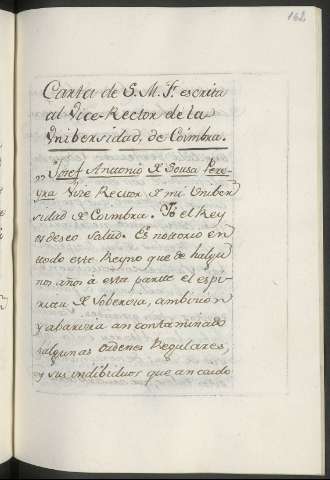 162
Carta de S. M. F. escrita
al Vice-Rector de la
Vnibersidad, de Coimbra.
,, Josef Anttonio de Sousa Perey-
yra Vize Rector de mi Uniber
sidad de Coimbra. Yo el Rey
os deseo salud. Es nottorio en
ttodo este Reyno que de halgu
nos años à esta partte el espi-
rittu de Soberbia, ambicion
y abaricia an conttaminado
halgunas Ordenes Regulares,
y sus indibiduos que an caido